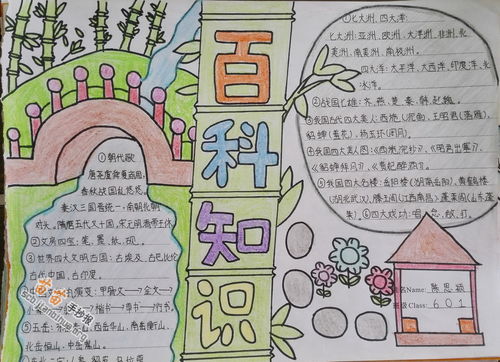 百科知识
①朝代歌
唐尧虞舜夏商周
春秋战国乱悠悠
秦汉三国晋统一,南朝北朝
对头。隋唐五代又十国,宋元明清帝王休
②文房四宝:笔、墨、纸、砚。
③世界四大文明古国:古埃及、古巴比伦
古代中国、古印度。
演变:甲骨文→金文→
楷书→草书→行书。
⑤五岳:
西岳华山、南岳衡山、
北岳恒山、中岳嵩山。
①七大洲、四大洋:
七大洲:亚洲、欧洲、大洋洲、非洲、北
美洲、南美洲、南极洲。
四大洋:太平洋、大西洋、印度洋、北
冰洋。
②战国七雄:齐、燕、楚、秦、韩、赵、魏。
③我国古代四大美人:西施(沉鱼)、王昭君(落雁)、
貂蝉(羞花)、杨玉环(闭月)。
④我国四大美人图:《西施浣纱》、《明君出塞》、
《貂蝉拜月》、《贵妃醉酒》。
⑤我国四大名楼:岳阳楼(湖南岳阳)、黄鹤楼
(湖北武汉)、滕王阁(江西南昌)、蓬莱阁(山东蓬
莱)。⑥四大戏功:唱、念、做、打。
Name:陈思颖
Class:601
苗苗手抄报